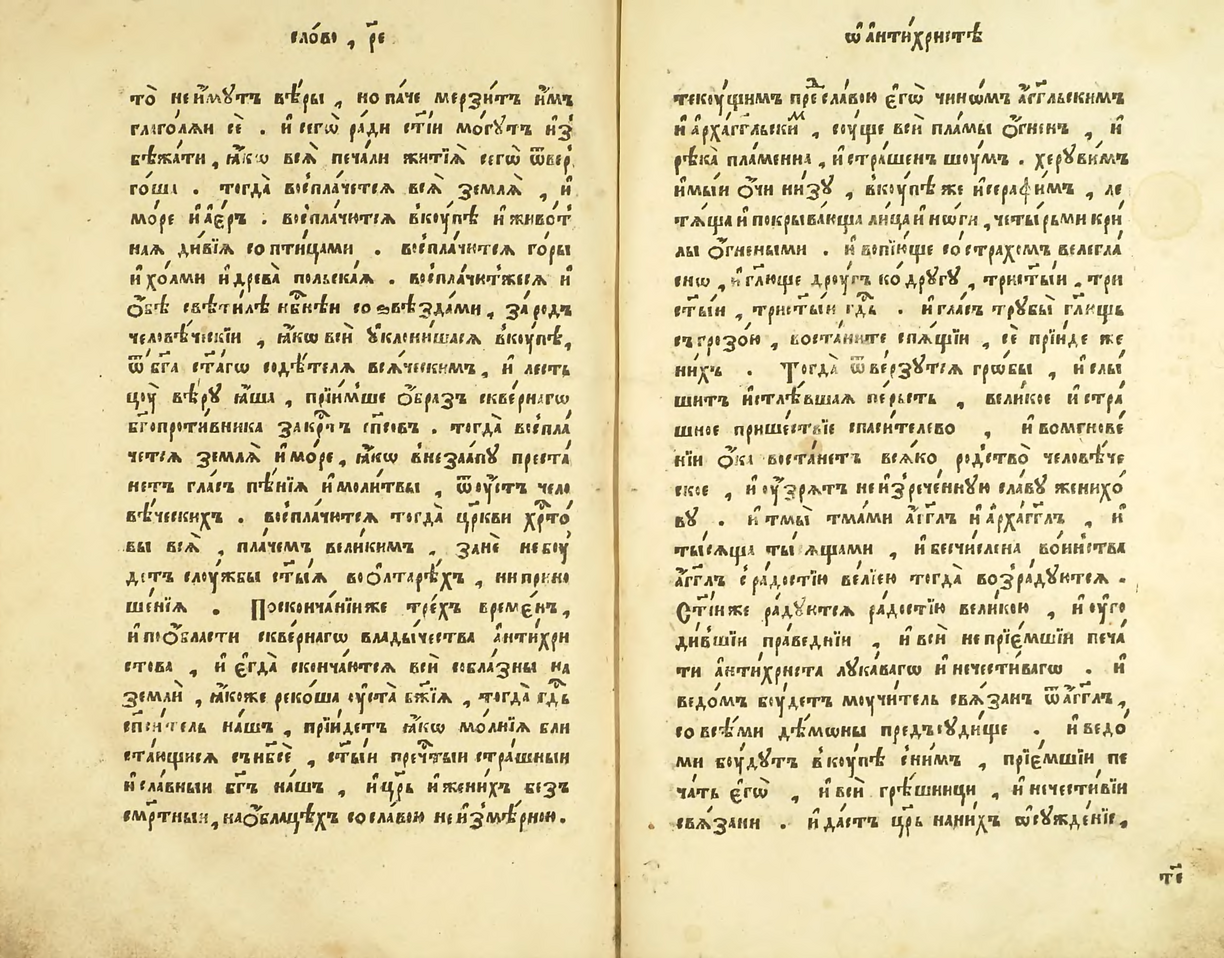 сло́во , р҃е
то̀ не и҆́мꙋтъ вѣ́ры , но паче мерзи́тъ и҆́мъ
глаго́ляи сѐ . и҆ сегѡ̀ ра́ди ст҃і́и мо́гꙋтъ и҆з̾
бѣжа́ти , ꙗ҆́кѡ всѧ̀ печа́ли житїѧ̀ сегѡ̀ ѿве́р
гоша . тогда̀ воспла́четсѧ всѧ̀ землѧ̀ , и҆
мо́ре и҆ а҆є́ръ . воспла́чютсѧ вкꙋ́пѣ и҆ живо́т
наѧ ди́вїѧ со пти́цами . воспла́чютсѧ го́ры
и҆ хо́лми и҆ древа̀ польска́ѧ . воспла́чютжесѧ и҆
ѻ҆́бѣ свѣти́лѣ нб҃нѣи со ѕвѣзда́ми , за́ родъ
человѣ́ческїи , ꙗ҆́кѡ вси̑ ᲂу҆клони́шасѧ вкꙋ́пѣ ,
ѿ бг҃а ст҃а́гѡ содѣ́телѧ всѧ́ческимъ , и҆ лесть
цоу̀ вѣ́рꙋ ꙗ҆́ша , прїи́мше ѻ҆́бразъ скве́рнагѡ
бг҃опроти́вника
четсѧ землѧ̀ и҆ мо́ре , ꙗ҆́кѡ внеза́апꙋ преста
нетъ гла́съ пѣ́нїѧ и҆ моли́твы , ѿ оу҆́стъ чело
вѣ́ческихъ . воспла́чютсѧ тогда̀ цр҃кви хр҃то́
вы всѧ̀ , пла́чемъ вели́кимъ , занѐ не боу́
детъ слоу́жбы ст҃ы́ѧ во ѻ҆лтарѣ́хъ , ни прино
ше́нїѧ . По сконча́нїи же тре́хъ време́нъ ,
и҆ по ѻ҆́бласти скве́рнагѡ влады́чества а҆нти́хри
стова , и҆ є҆гда̀ сконча́ютсѧ вси̑ собла́зны на
земли̑ , ꙗ҆́коже реко́ша оу҆ста̀ бж҃їѧ , тогда̀ гд҃ь
спси́тель на́шъ , прїи́детъ ꙗ҆́кѡ мо́лнїѧ бли
ста́ющисѧ съ нб҃сѐ , ст҃ы́и пречⷭ҇тыи стра́шныи
и҆ сла́вныи бг҃ъ на́шъ , и҆ цр҃ь и҆ жени́хъ без
сме́ртныи , на ѻ҆́блацѣхъ со сла́вою неи҆змѣ́рною .
ѡ҆ а҆нти́христѣ
текоу́щимъ преⷣ сла́вою є҆гѡ̀ чинѡ́мъ а҆́гг҃льскимъ
и҆ а҆рха́гг҃льскиⷨ , соу́ще вси̑ пла́мы ѻ҆́гнени , и҆
рѣ́ка пла́менна , и҆ стра́шенъ шоу́мъ . херꙋви́мъ
и҆мы́и ѻ҆́чи ни́зꙋ , вкоу́пѣ же и҆ серафи́мъ , ле
тѧ́ща и҆ покрыва́юща лица̀ и҆ но́ги , четы́рьми кри
лы ѻ҆́гнеными . и҆ вопїю́ще со стра́хомъ велегла́
сно , и҆ гл҃юще дроу́гъ ко дрꙋ́гꙋ , трист҃ы́и , три
ст҃ы́и , трист҃ы́и гд҃ь . и҆ гла́съ трꙋбы̀ гл҃ющь
съ грозо́ю , воста́ните спѧ́щїи , сѐ прїи́де же
ни́хъ . Тогда̀ ѿве́рзꙋтсѧ гро́бы , и҆ слы
ши́тъ и҆стлѣ́вшаѧ пе́рьсть , вели́кое и҆ стра́
шное прише́ствїе спаси́телево , и҆ во мгнове́
нїи ѻ҆́ка воста́нетъ всѧ́ко родство̀ человѣ́че
ское , и҆ оу҆́зрѧтъ неи҆зрече́ннꙋю сла́вꙋ женихо́
вꙋ . и҆ тмы̀ тма́ми а҆́гг҃лъ и҆ а҆рха́гг҃лъ , и҆
ты́сѧща ты́сѧщами , и҆ бесчи́слена во́инства
а҆́гг҃лъ с ра́достїю ве́лїею тогда̀ возра́дꙋютсѧ .
Ст҃і́и же ра́дꙋютсѧ ра́достїю вели́кою , и҆ оу҆го
ди́вшїи пра́веднїи , и҆ вси̑ не прїє́мшїи печа́
ти а҆нти́христа лꙋка́вагѡ и҆ нечести́вагѡ . и҆
ведо́мъ боу́детъ моучи́тель свѧ́занъ ѿ а҆́гг҃лъ ,
со всѣ́ми де́мѡны предъ соу́дище . и҆ ведо́
ми боу́дꙋтъ вкоу́пѣ с ни́мъ , прїє́мшїи пе
ча́ть є҆гѡ̀ , и҆ вси̑ грѣ́шници , и҆ нечести́вїи
свѧ́зани . и҆ да́стъ цр҃ь на ни́хъ ѡ҆сꙋжде́нїе ,
т҃е